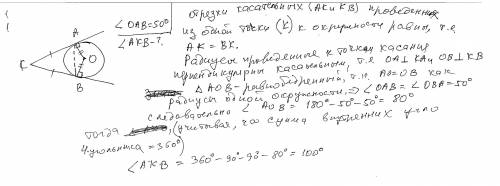 ∠OAB=50°
∠AKB-?
A
K
O
B
отрезки касательных (AK и KB) проведенные
из одной точки (K) к окружности равны, т.е.
AK = BK.
Радиусы проведенные к точкам касания
перпендикулярны касательным, т.е OA⊥KA и OB⊥KB
△AOB-равнобедренный, т.к. AO=OB как
радиусы одной окружности ⇒ ∠OAB=∠OBA=50°
следовательно ∠AOB = 180°-50°-50° = 80°
тогда (учитывая, что сумма внутренних углов
4-угольника = 360°)
∠AKB = 360°-90°-90°-80° = 100°